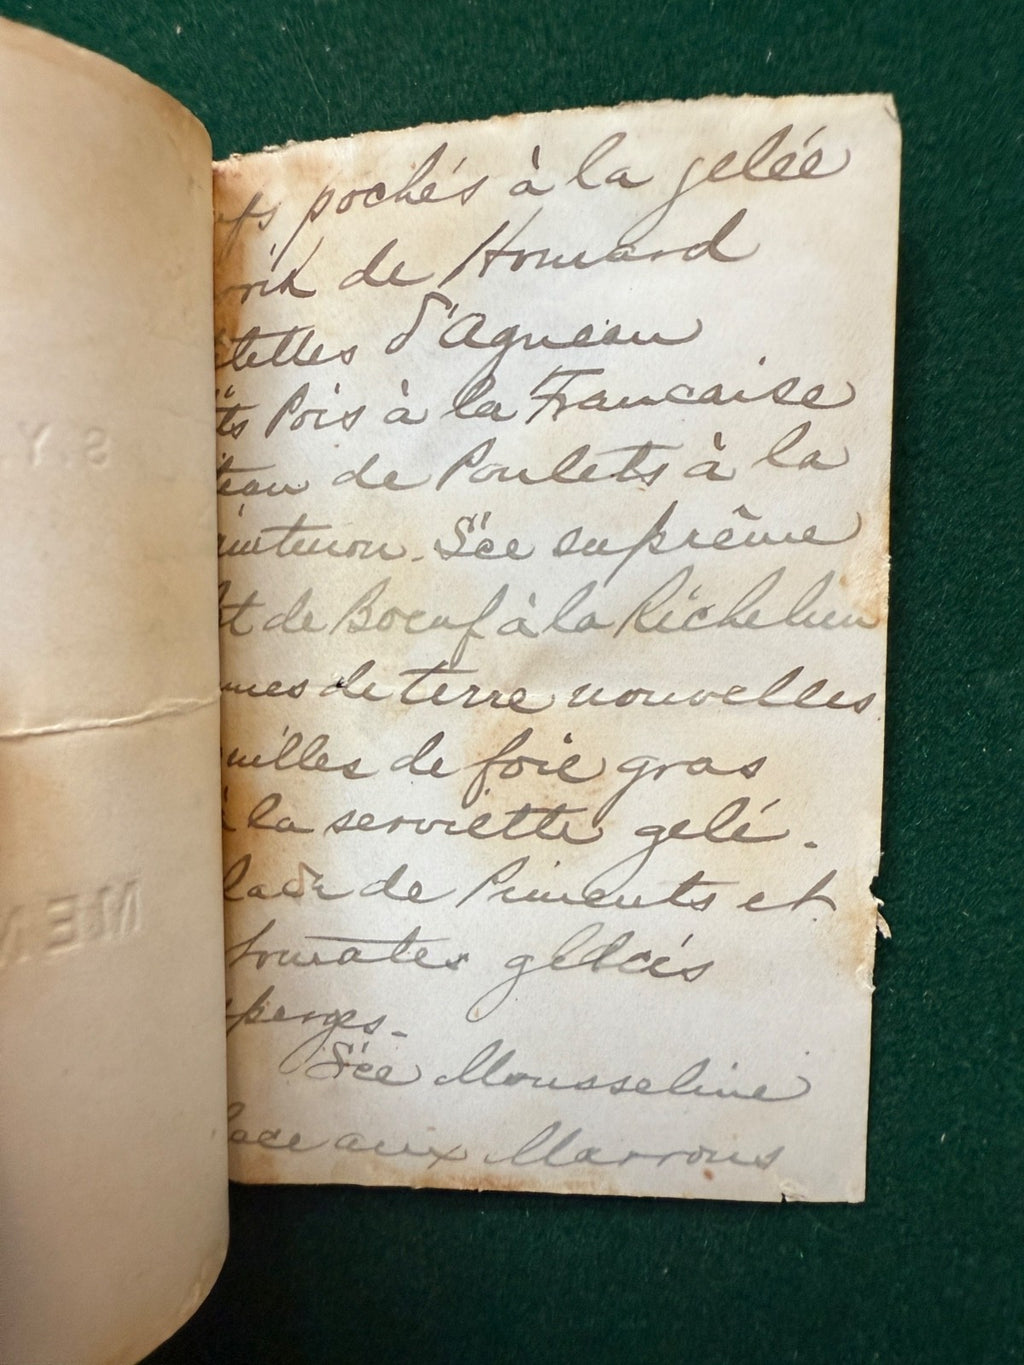 pochés à la gelée
de Homard
d'Agneau
Pois à la Francaise
de Poulets à la
intenon. Sce suprême
de Boeuf à la Richelieu
mes de terre nouvelles
uilles de foie gras
à la serviette gelé.
lade de Piments et
tomates gelées
sperges.
Sce Mousseline
lace aux Marrons
S.Y.
MEN